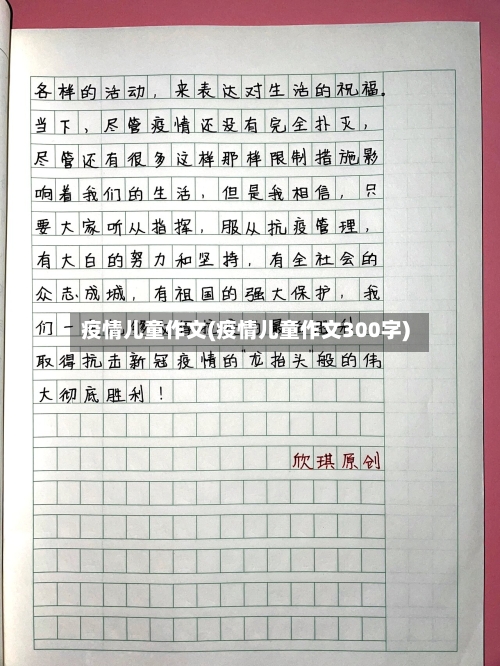 各样的活动，来表达对生活的祝福。
当下，尽管疫情还没有完全扑灭，
尽管还有很多这样那样限制措施影
响着我们的生活，但是我相信，只
要大家听从指挥，服从抗疫管理，
有大白的努力和坚持，有全社会的
众志成城，有祖国的强大保护，我
们一
疫情儿童作文(疫情儿童作文300字)
取得抗击新冠疫情的"龙抬头"般的伟
大彻底胜利！
欣琪原创